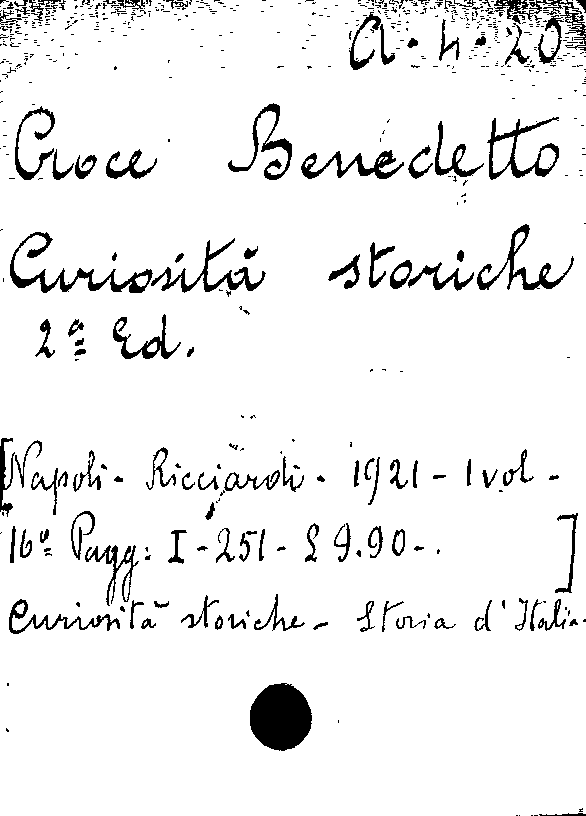 A.4.20
Croce Benedetto
Curiosità storiche
2ª Ed.
[Napoli - Ricciardi - 1921 - 1 vol -
16º Pagg: I - 251 - £ 9.90 -. ]
Curiosità storiche - Storia d'Italia.